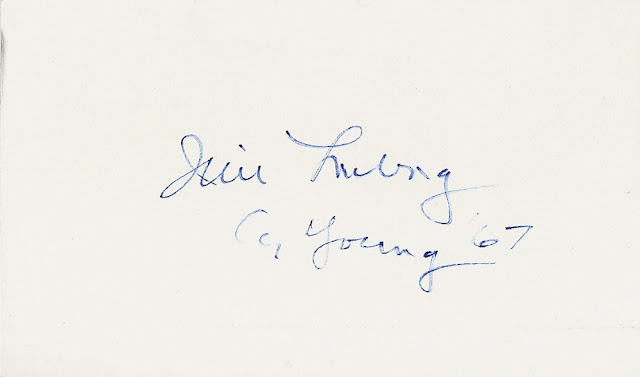 Jim Lonborg
Cy Young '67